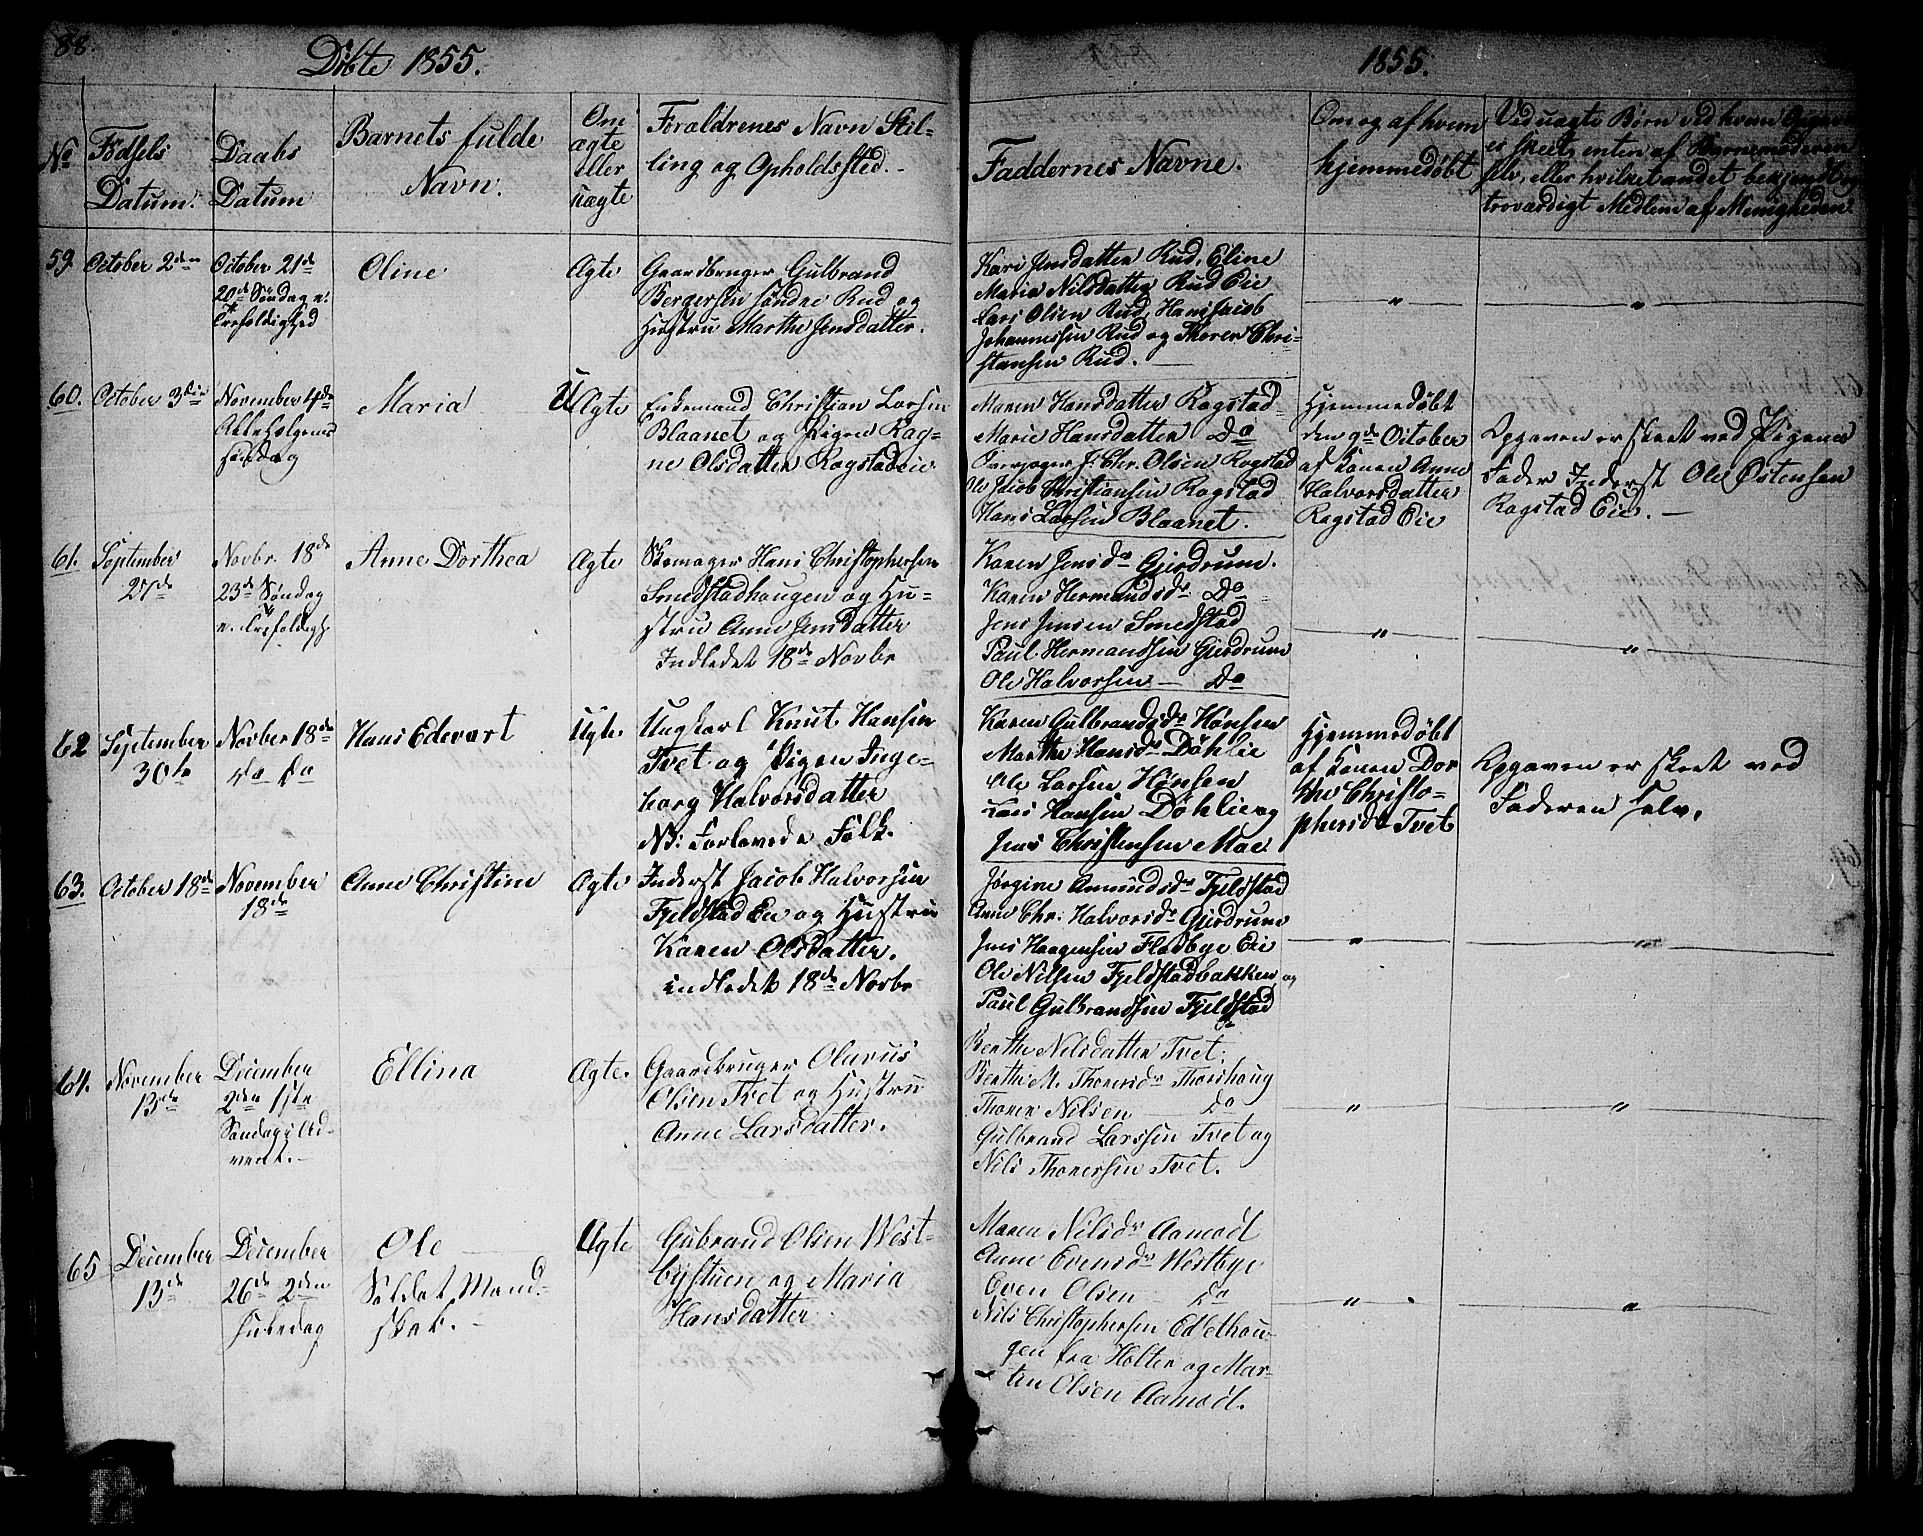 88.
Döbte 1855.
No
Födsels
Datum.
Daabs
Datum
Barnets fulde
Navn.
Om
ægte
eller
uægte
Forældrenes Navn Stil-
ling og Opholdssted.-
59. October 2den
October 21de
20de Søndag e:
Trefoldighed
Oline
Ægte
Gaardbruger Gulbrand
Bergersen søndre Rud og
Hustru Marthe Jensdatter.
60. October 3die
November 4de
Alle Helgens
søndag
Maria
UÆgte
Enkemand Christian Larsen
Blaanet og Pigen Rag-
ne Olsdatter Ragstadeie
61. September
27de
Novbr. 18de
23de Søndag
e. Trefoldigh
Anne Dorthea
Ægte
Skomager Hans Christophersen
Smedstadhaugen og Hu-
stru Anne Jensdatter
Indledet 18de Novbr
62 September
30te
Novber 18de
do do
Hans Edevart
Uægte.
Ungkarl Knut Hansen
Tvet og Pigen Inge-
borg Halvorsdatter
NB: Forlovede Folk.
63. October 18de
November
18de
Anne Christine
Ægte
Inderst Jacob Halvorsen
Fjeldstad Eie og Hustru
Karen Olsdatter.
indledet 18de Novbr
64. November
13de
December
2den 1ste
Søndag i Ad-
vent.-
Ellina
Ægte.
Gaardbruger Olavus
Olsen Tvet og Hustru
Anne Larsdatter.
65 December
13de
December
26de 2den
Juledag
Ole
Soldat Mand-
skab.-
Ægte
Gubrand Olsen West-
bystuen og Maria
Hansdatter
1855.
Faddernes Navne.
Om og af hvem
hjemmedøbt
Ved uægte Børn ved hvem Opgaven
er skeet, enten af Barnemoderen
selv, eller hvilket andet bekjendt og
troværdigt Medlem af Menigheden.
Kari Jensdatter Rud, Eline
Maria Nilsdatter Rud Eie
Lars Olsen Rud, Hans Jacob
Johannessen Rud og Thorer Chri-
stansen Rud.-
"
"
Maren Hansdatter Ragstad
Marie Hansdatter Do
J: Chr. Olsen Ragstad
Ole Jacob Christiansen Ragstad
Hans Larsen Blaanet.
Hjemmedøbt
den 9de October
af Konen Anne
Halvorsdatter
Ragstad Eie
Opgaven er skeet ved Pigens
Fader Inderst Ole Østensen
Ragstad Eie.-
Karen Jensdr Gjerdrum.
Karen Hermandsdr Do
Jens Jensen Smedstad
Paul Hermansen Gjerdrum
Ole Halvorsen - Do
"
"
Karen Gulbrandsdr Hønsen
Marthe Hansdr Døhlie
Ole Larsen Hønsen
Lars Hansen Döhlie og
Jens Christensen Moe
Hjemmedøbt
af Konen Dor
the Christo-
phersdr Tvet
Opgaven er skeet ved
Faderen selv.
Jørgine Amundsdr Fjeldstad
Anne Chr: Halvorsdr Gjerdrum
Jens Haagensen Flodbye Eie
Ole Nilsen Fjeldstadbakken og
Paul Gulbrandsen Fjeldstad
"
"
Berthe Nilsdatter Tvet.
Berthe M. Thorersdr Thorshaug
Thorer Nilsen - do
Gulbrand Larssen Tvet og
Nils Thorersen Tvet.
"
"
Maren Nilsdr Aamodt
Anne Evensdr Westbye
Even Olsen - do
Nils Christophersen Edlethau-
gen fra Holter og Mar-
tin Olsen Aamodt.
"
"